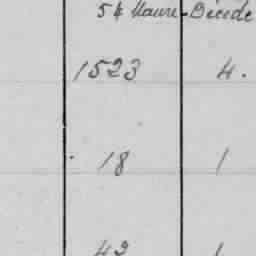 5 & Maure - Décède
1523 4.
18 1
42 1